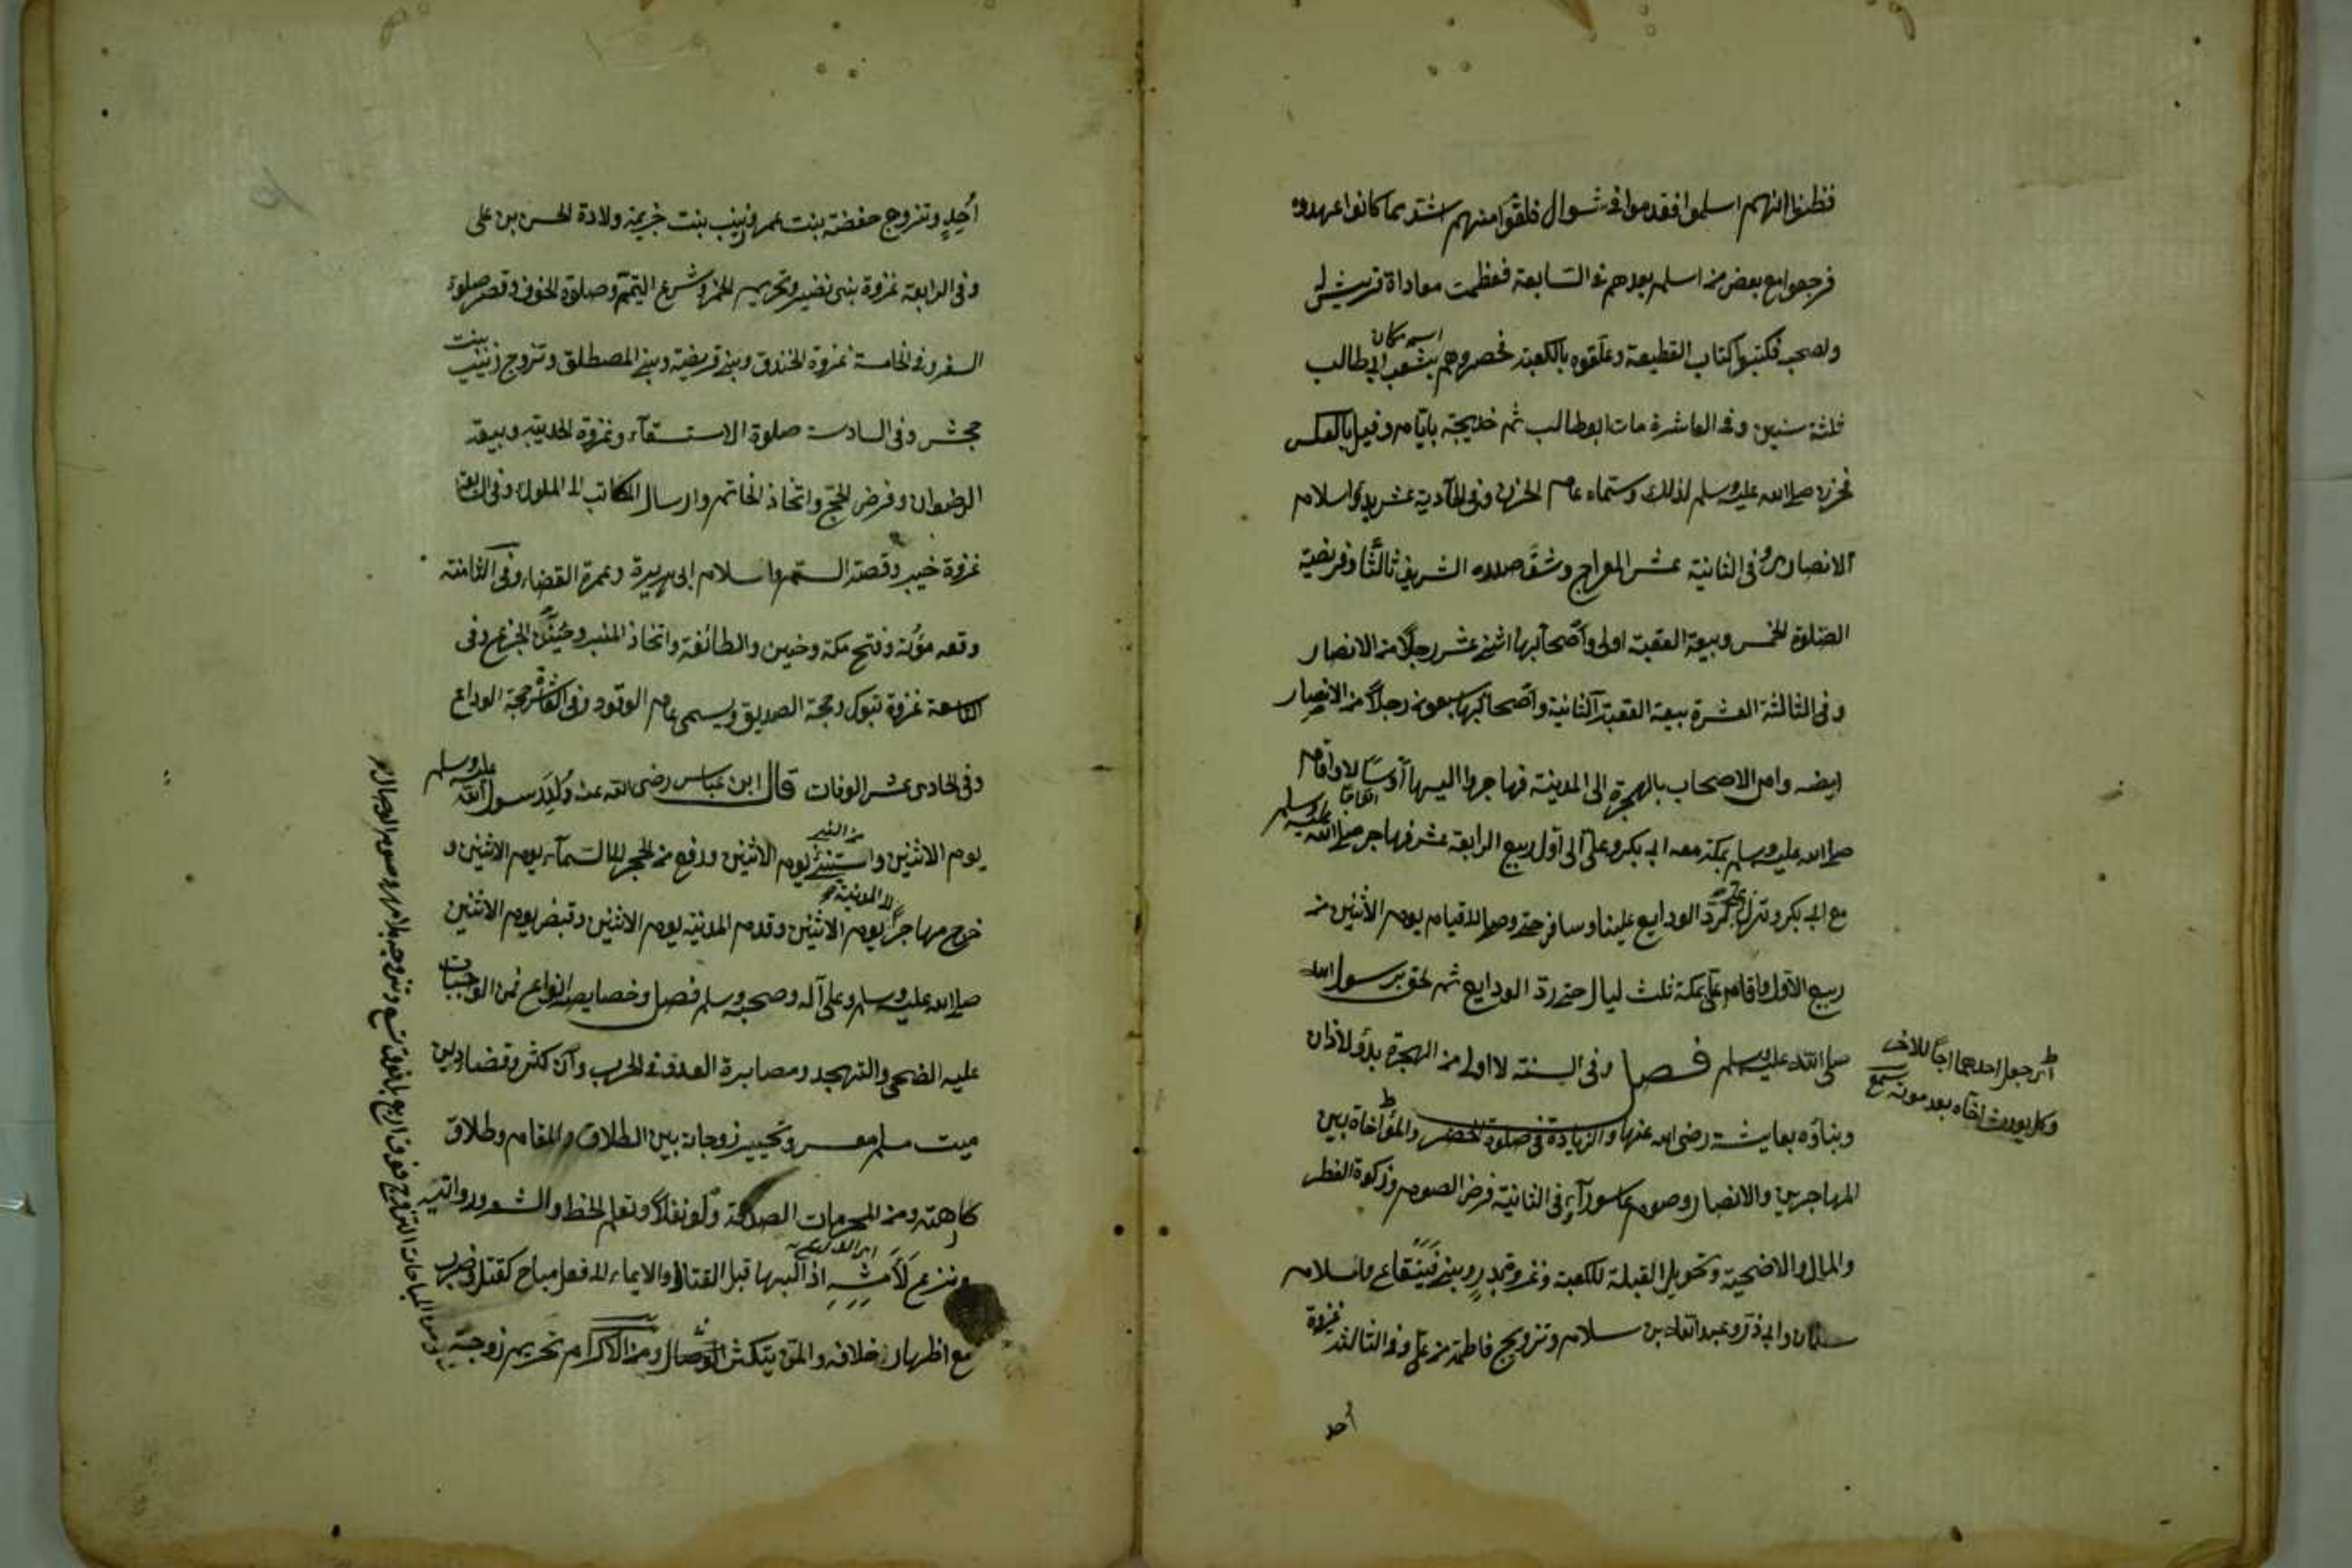 فظنوا انهم اسلموا فقدموا في شوال فلقوا منهم اشد مما كانوا عهدوه
فرجعوا مع بعض من اسلم بعدهم في السابعة فعظمت معاداة قريش له
ولصحبه فكتبوا كتاب القطيعة وعلقوه بالكعبة فحصروهم بشعب ابي طالب
اسم مكان
ثلثة سنين وفي العاشرة مات ابو طالب ثم خديجة بايام وقيل بالعكس
فحزن صلى الله عليه وسلم لذلك وسماه عام الحزن وفي الحادية عشر بدؤ اسلام
الانصار وفي الثانية عشر المعراج وشق صدره الشريف ثالثا وفرضية
الصلوة الخمس وبيعة العقبة اولى واصحابها اثني عشر رجلا من الانصار
وفي الثالثة العشرة بيعة العقبة الثانية واصحابها سبعون رجلا من الانصار
ايضه وامر الاصحاب بالهجرة الى المدينة فهاجروا اليها ارسالا واقام
صلى الله عليه وسلم بمكة معه ابي بكر وعلي الى اول ربيع الرابعة عشر فهاجر صلى الله عليه وسلم
مع ابي بكر ونزل بمكة لرد الودايع علينا وسافر حتى وصل لقيام يوم الاثنين من
ربيع الاول واقام علي بمكة ثلث ليال حتى رد الودايع ثم لحق برسول الله
صلى الله عليه وسلم فصل وفي السنة لاولى من الهجرة بدؤ لاذان
وبناؤه بعايشة رضي الله عنها والزيادة في صلوة الحضر والمؤاخاة بين
المهاجرين والانصار وصوم عاشوراء وفي الثانية فرض الصوم وزكوة الفطر
والمال والاضحية وتحويل القبلة للكعبة وغزوة بدر وبني قينقاع واسلام
سلمان وابي ذر وعبد الله بن سلام وتزويج فاطمة من علي وفي الثالثة غزوة
احد
اي جعل احدهما اخا للاخر
وكل يورث اخاه بعد موته
احد وتزوج حفضة بنت عمر وزينب بنت خزيمة ولادة الحسن بن علي
وفي الرابعة غزوة بني نضير وتحريم الخمر وشرع التيمم وصلوة الخوف وقصر صلوة
السفر وفي الخامسة غزوة الخندق وبني قريضة وبني المصطلق وتزوج زينب بنت
جحش وفي السادسة صلوة الاستسقاء وغزوة الحديبية وبيعة
الرضوان وفرض الحج واتخاذ الخاتم وارسال المكاتب الى الملوك وفي السابعة
غزوة خيبر وقصة السم واسلام ابي هريرة وعمرة القضاء وفي الثامنة
وقعه مؤتة وفتح مكة وحنين والطائفة واتخاذ المنبر وحنين الجزع وفي
التاسعة غزوة تبوك وحجة الصديق ويسمى عام الوفود وفي العاشرة حجة الوداع
وفي الحادى عشر الوفات قال ابن عباس رضي الله عنه ولد رسول الله عليه وسلم
يوم الاثنين واستنبئ يوم الاثنين ورفع من الحجر الى السماء يوم الاثنين و
خرج مهاجرا يوم الاثنين وقدم المدينة يوم الاثنين وقبض يوم الاثنين
صلى الله عليه وسلم وعلى آله وصحبه وسلم فصل وخصايصه انواع فمن الواجبات
عليه الضحى والتهجد ومصابرة العدو في الحرب وان كثر وقضاء دين
ميت مسلم معسر وتخيير زوجاته بين الطلاق والمقام وطلاق
كارهته ومن المحرمات الصدقة ولو نفلا وتعلم الخط والشعر وروايته
ونزع لأمته اذا لبسها قبل القتال والايماء لفعل مباح كقتل وضرب
مع اظهار خلافه والمن يتكثر الوصال ومن الاكرام تحريم زوجته